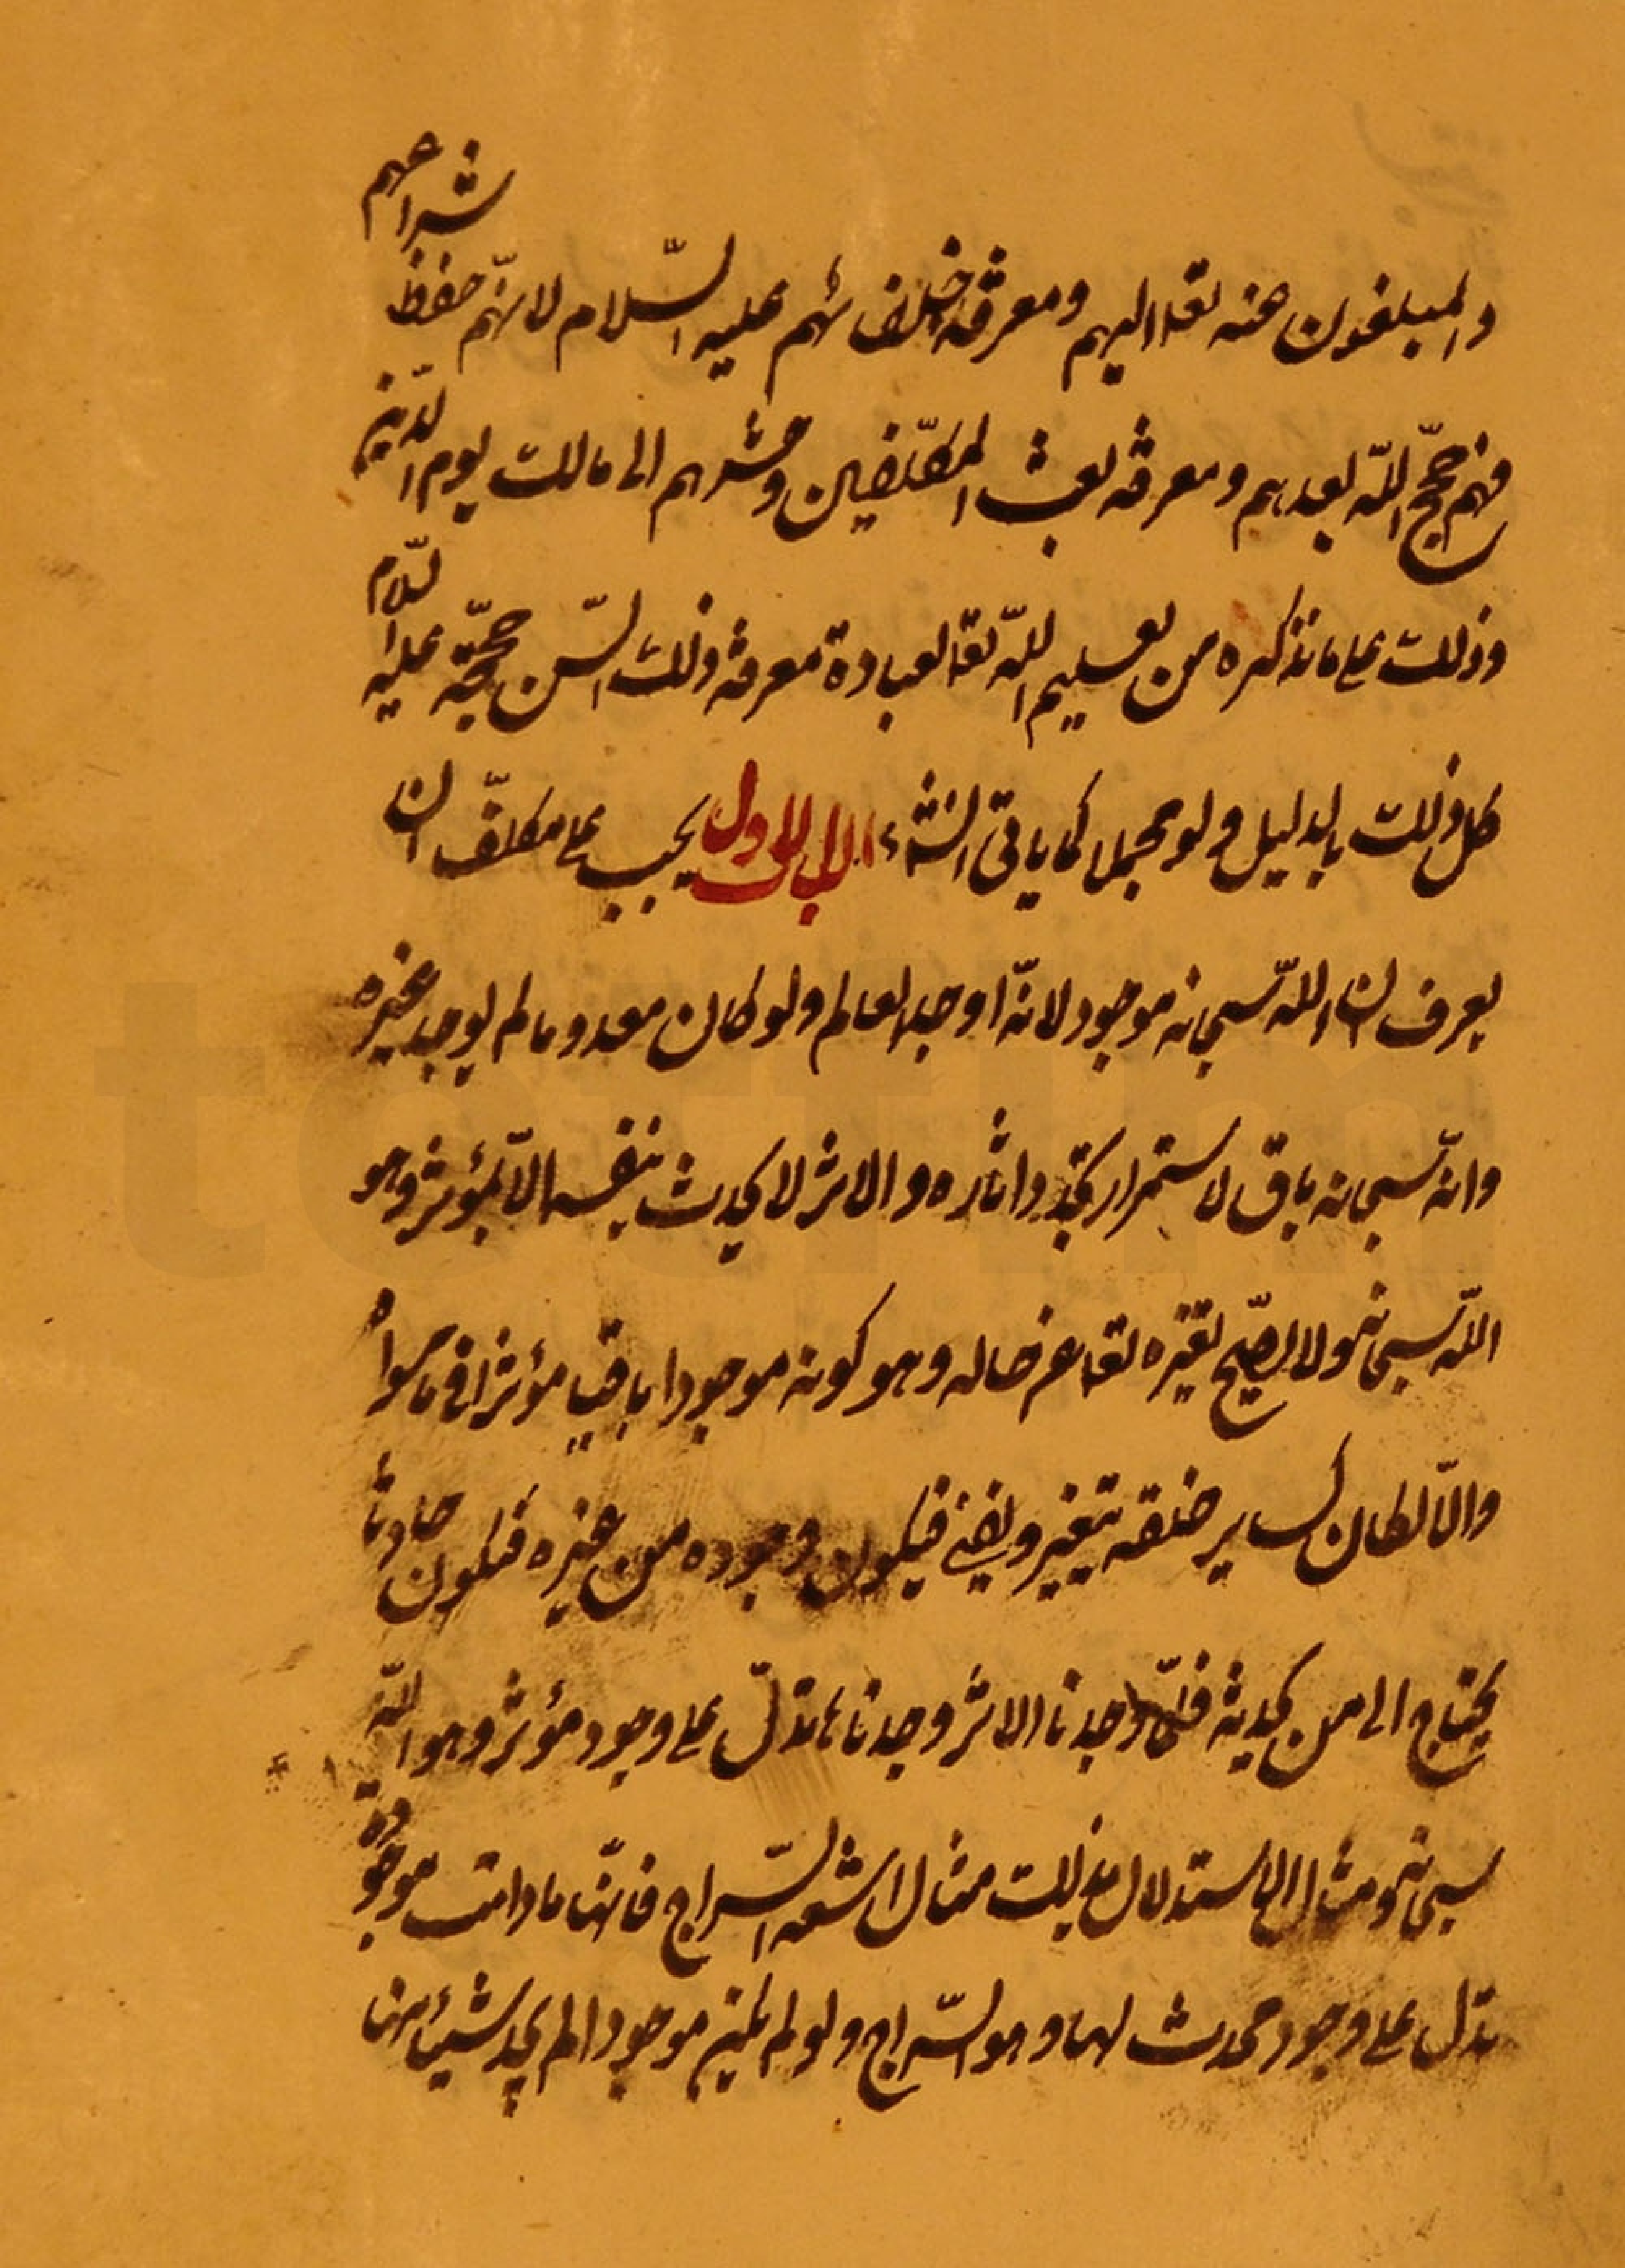 والمبلغون عنه تعا اليهم ومعرفة خلفائهم عليه السّلام لانّهم حفظ شرايعهم
فهم حجج اللّه بعدهم ومعرفة بعث المكلّفين وحشرهم الى مالك يوم الدّين
وذلك على ما نذكره من تعليم اللّه تعا لعباده معرفة ذلك السن حججه عليه السّلام
كل ذلك بالدليل ولو مجملا كما ياتى انشاء الباب الاول يجب على مكلّف ان
يعرف ان اللّه سبحانه موجود لانّه اوجد العالم ولو كان معدوما لم يوجد غيره
وانّه سبحانه باق لاستمرار تجدد اثاره والاثر لا يحدث بنفسه الّا بمؤثر وهو
اللّه سبحانه ولا يصحّ تغيّره تعا عن حاله وهو كونه موجودا باقيا مؤثرا فى ما سواه
والّا لكان كساير خلقه يتغير ويفنى فيكون وجوده من غيره فيكون حادثا
يحتاج الى من يحدثه فلمّا وجدنا الاثر وجدناها تدلّ على وجود مؤثر وهو اللّه
سبحانه ومثال الاستدلال بذلك مثال اشعه السّراج فانّها مادامت موجودة
تدل على وجود محدث لها وهو السّراج ولو لم يكن موجودا لم يوجد شيئا منها